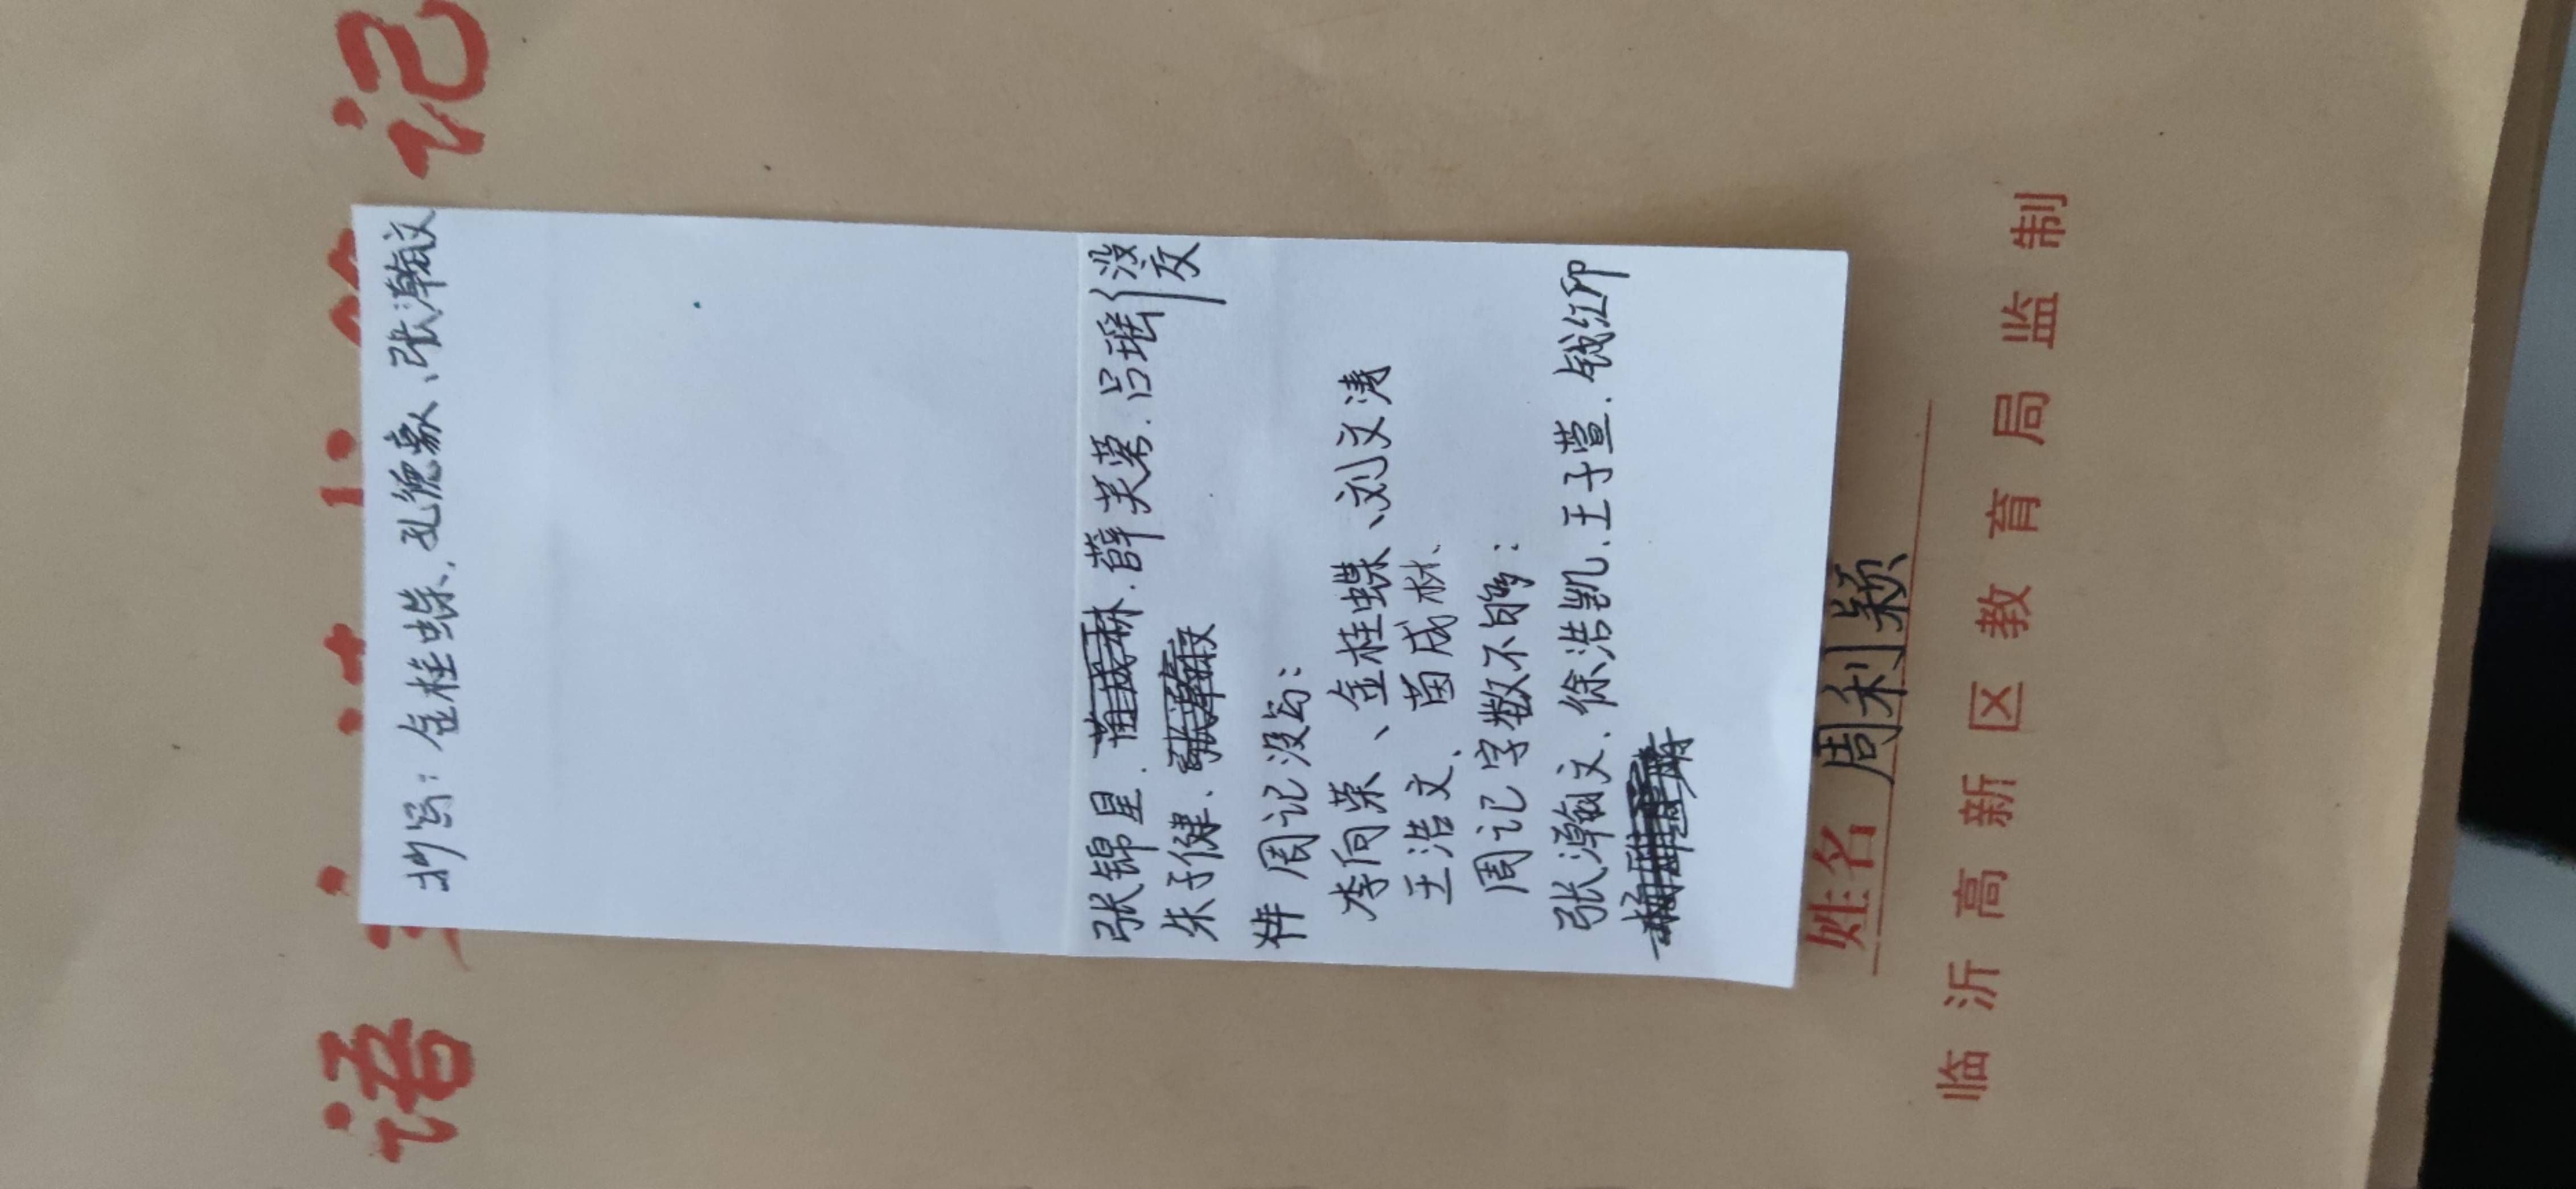 语
记
抄写：金桂蝶、孔德豪、张瀚文
张锦星、苗成林、薛芙蓉、吕瑶（没交）
朱子健、
周记没写：
李向荣、金桂蝶、刘文涛
王浩文、苗成林、
周记字数不够：
张瀚文、徐浩凯、王子萱、钱红印
姓名 周利颖
临沂高新区教育局监制